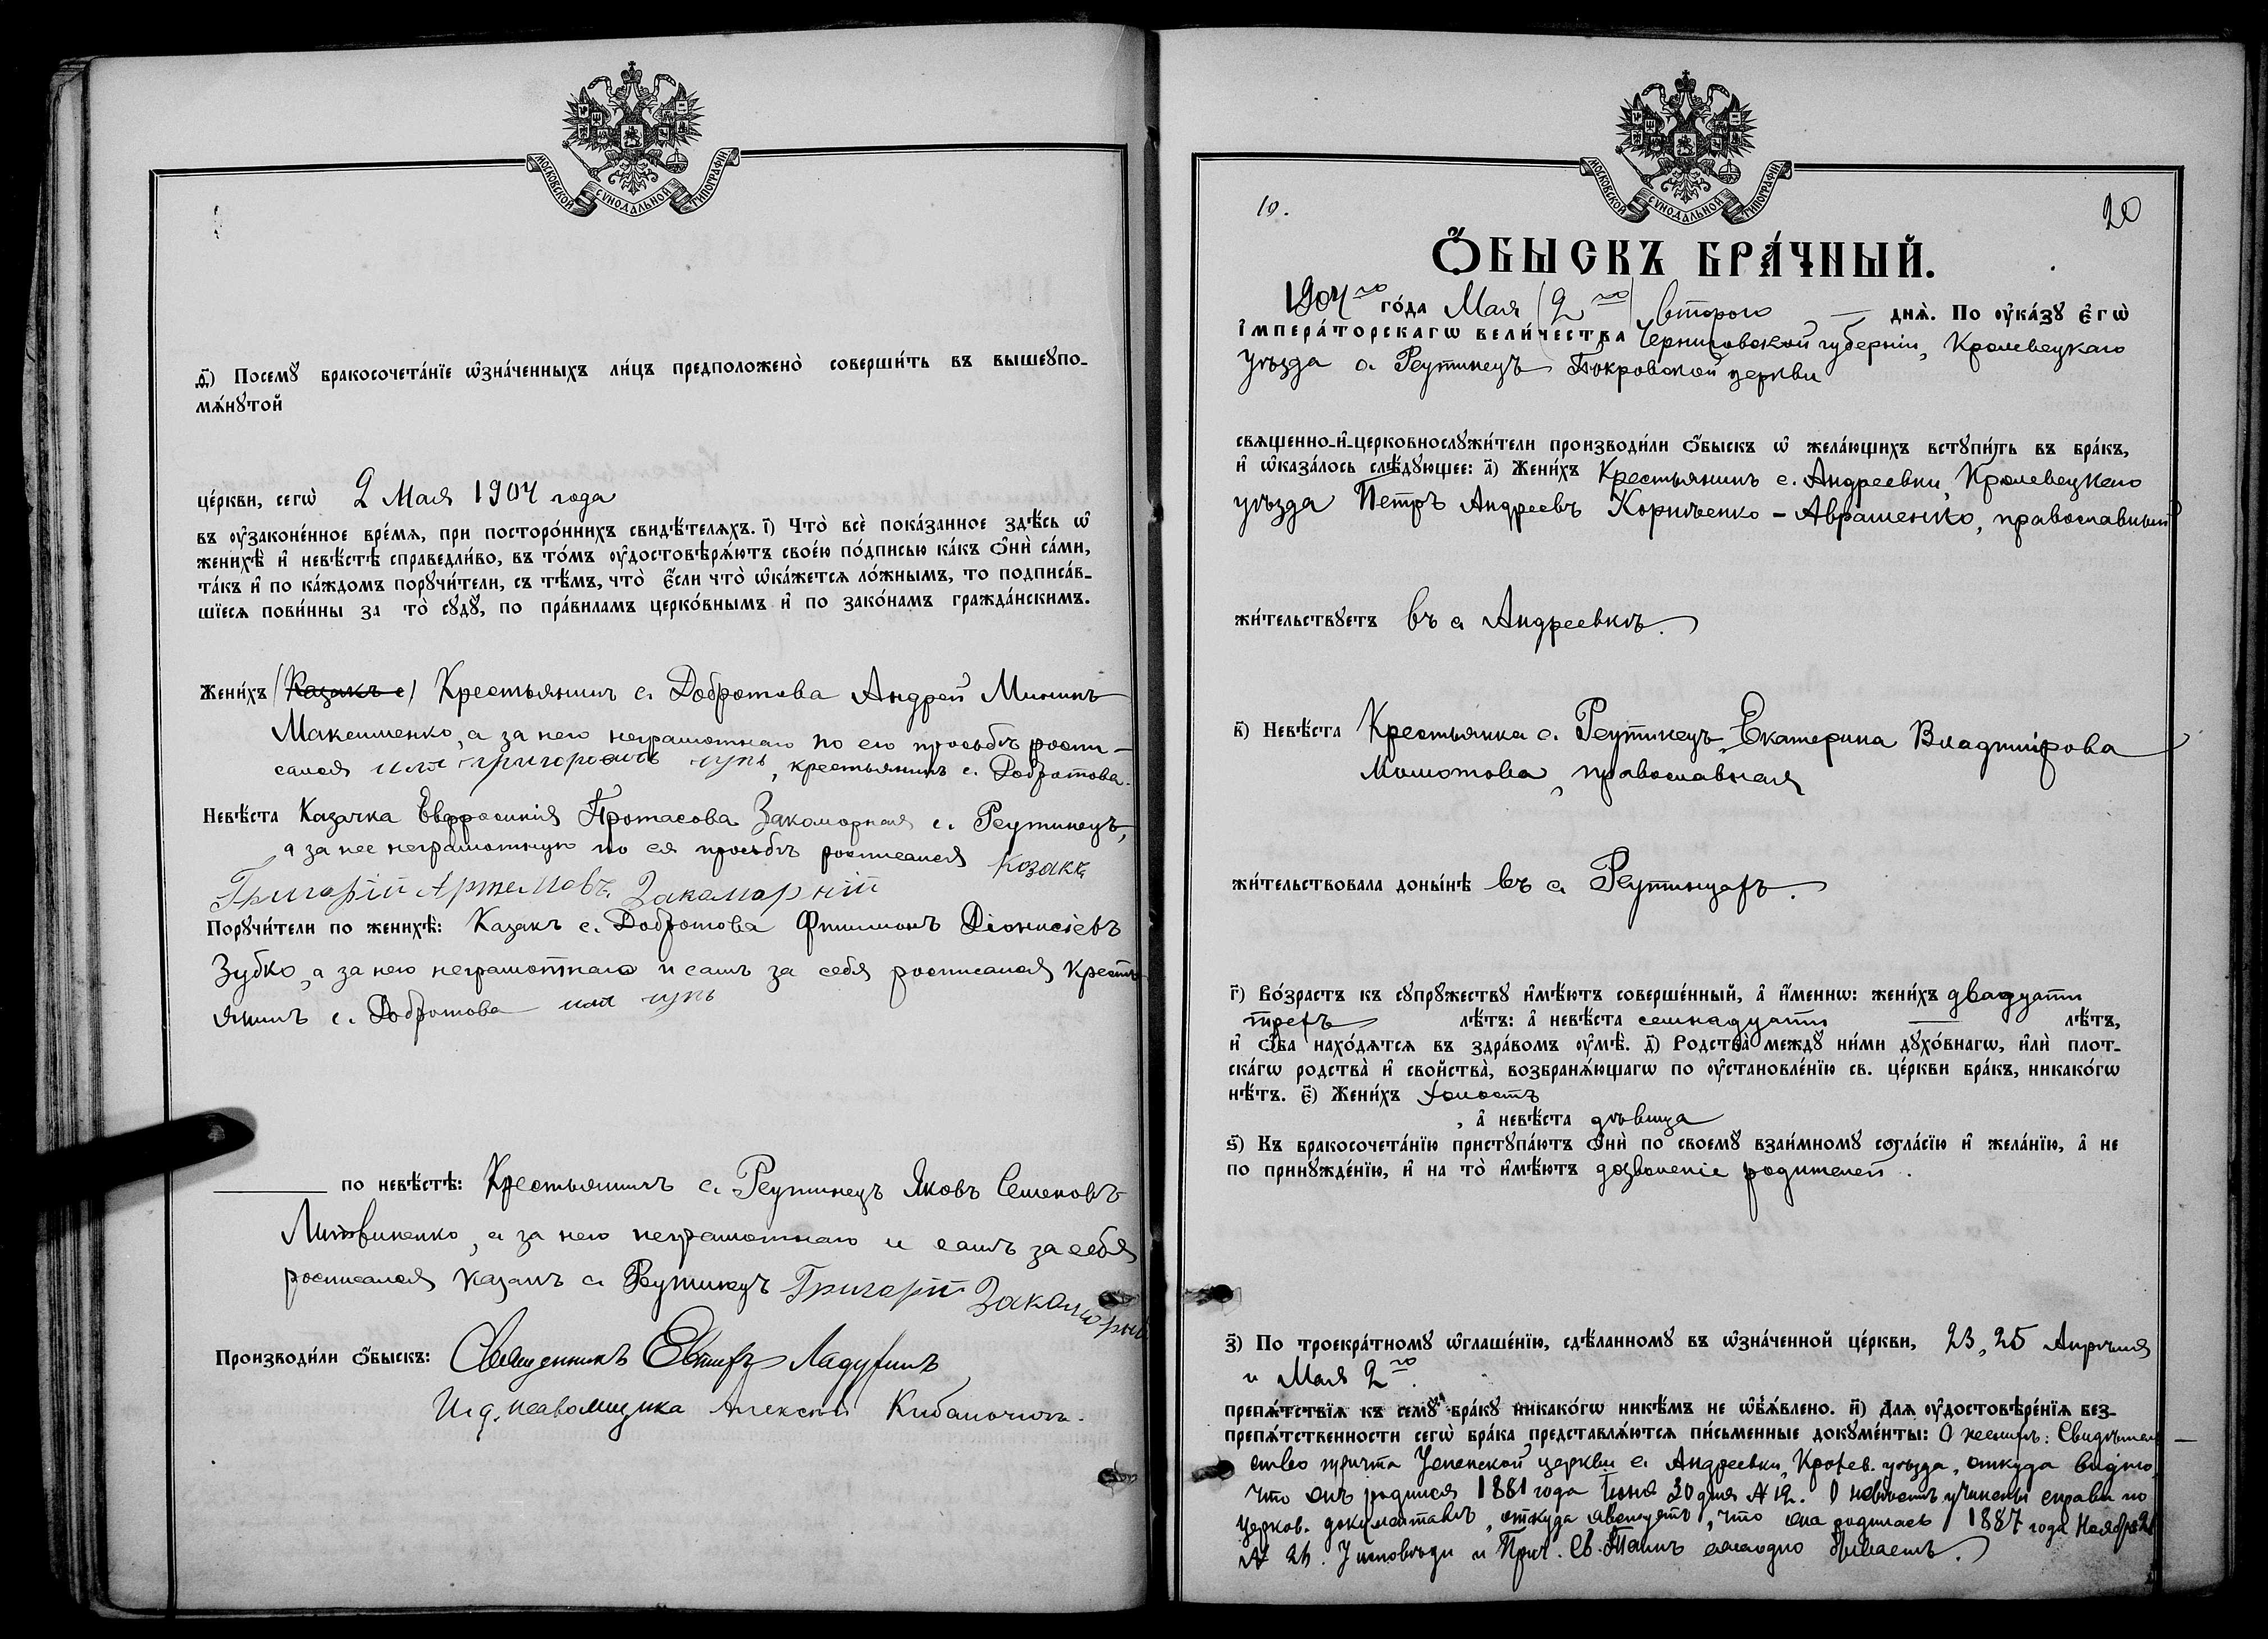 МОСКОВСКОЙ СѴНОДАЛЬНОЙ ТИПОГРАФІИ
д҃) Посемꙋ бракосочета́нїе ѡ҆зна́ченныхъ ли́цъ предположено̀ соверши́ть въ вышеꙋпо-
мѧ́нꙋтой
це́ркви, сегѡ̀ 2 Мая 1904 года
въ ᲂу҆зако́ненное вре́мѧ, при посторо́ннихъ свидѣ́телѧхъ. і҃) Что̀ всѐ пока́занное здѣ́сь ѡ҆
женихѣ̀ и҆ невѣ́стѣ справедли́во, въ то́мъ ᲂу҆достовѣрѧ́ютъ свое́ю по́дписью ка́къ ѻ҆нѝ са́ми,
та́къ и҆ по ка́ждомъ порꙋчи́тели, съ тѣ́мъ, что̀ є҆́сли что̀ ѡ҆ка́жетсѧ ло́жнымъ, то подписа́в-
шїесѧ пови́нны за то̀ сꙋдꙋ̀, по пра́виламъ церко́внымъ и҆ по зако́намъ гражда́нскимъ.
Жени́хъ (Казакъ с) Крестьянинъ с. Добротова Андрей Мининъ
Максименко, а за него неграмотнаго по его просьбѣ роспи-
сался крестьянинъ с. Добротова.
Невѣ́ста Казачка Евфросинія Протасова Закоморная с. Реутинецъ,
а за нее неграмотную по ея просьбѣ росписался козакъ
Григорій Артемовъ Закаморній
Порꙋчи́тели по женихѣ̀: Казакъ с. Добротова Филимонъ Діонисіевъ
Зубко, а за него неграмотнаго и самъ за себя росписался крестъ-
янинъ с. Добротова
по невѣ́стѣ: Крестьянинъ с. Реутинецъ Яковъ Семеновъ
Литвиненко, а за него неграмотнаго и самъ за себя
росписался казакъ с. Реутинецъ Григорій Закаморній
Производи́ли ѻ҆́быскъ: Священникъ
И. д. псаломщика Алексѣй
МОСКОВСКОЙ СѴНОДАЛЬНОЙ ТИПОГРАФІИ
10.
20
Ѻ҆́БЫСКЪ БРА́ЧНЫЙ.
1904го го́да Мая (2го) второго днѧ̀. По ᲂу҆ка́зꙋ є҆гѡ̀
і҆мпера́торскагѡ вели́чества Черниговской губерніи, Кролевецкаго
уѣзда с. Реутинецъ Покровской церкви
свѧщенно-и҆-церковнослꙋжи́тели производи́ли ѻ҆́быскъ ѡ҆ жела́ющихъ встꙋпи́ть въ бра́къ,
и҆ ѡ҆каза́лось слѣ́дꙋющее: а҃) Жени́хъ Крестьянинъ с. Андреевки, Кролевецкаго
уѣзда Петръ Андреевъ Корнѣенко - Аврашенко, православный
жи́тельствꙋетъ въ с Андреевкѣ.
в҃) Невѣ́ста Крестьянка с. Реутинецъ Екатерина Владимірова
Молотова, православная
жи́тельствовала доны́нѣ въ с. Реутинцахъ.
г҃) Во́зрастъ къ сꙋпрꙋ́жествꙋ и҆мѣ́ютъ соверше́нный, а҆ и҆́меннѡ: жени́хъ двадцати
трехъ лѣ́тъ: а҆ невѣ́ста семнадцати лѣ́тъ,
и҆ ѻ҆́ба нахо́дѧтсѧ въ здра́вомъ ᲂу҆мѣ̀. д҃) Родства̀ междꙋ̀ ни́ми дꙋхо́внагѡ, и҆лѝ плот-
ска́гѡ родства̀ и҆ сво́йства̀, возбранѧ́ющагѡ по ᲂу҆становле́нїю св. це́ркви бра́къ, никако́гѡ
нѣ́тъ. є҃) Жени́хъ холостъ
, а҆ невѣ́ста дѣвица
ѕ҃) Къ бракосочета́нїю пристꙋпа́ютъ ѻ҆нѝ по своемꙋ̀ взаи́мномꙋ согла́сїю и҆ жела́нїю, а҆ не
по принꙋжде́нїю, и҆ на то̀ и҆мѣ́ютъ дозволеніе родителей.
з҃) По троекра́тномꙋ ѡ҆глаше́нїю, сдѣ́ланномꙋ въ ѡ҆зна́ченной це́ркви, 23, 25 Апрѣля
и Мая 2го.
препѧ́тствїѧ къ семꙋ̀ бра́кꙋ никако́гѡ никѣ́мъ не ѡ҆б̾ѧ́влено. и҃) Длѧ ᲂу҆достовѣре́нїѧ без-
препѧ́тственности сегѡ̀ бра́ка представлѧ́ютсѧ пи́сьменные докꙋме́нты: О женихѣ: Свидѣтель-
ство причта Успенской церкви с. Андреевки, Кролев. уѣзда, откуда видно,
что онъ родился 1881 года Іюня 30 дня № 12. О невѣстѣ учинены справки по
церков. документамъ, откуда явствуетъ, что она родилась 1887 года Ноября 21
№ 24. У исповѣди и Прич. Св. Таинъ ежегодно бываетъ.